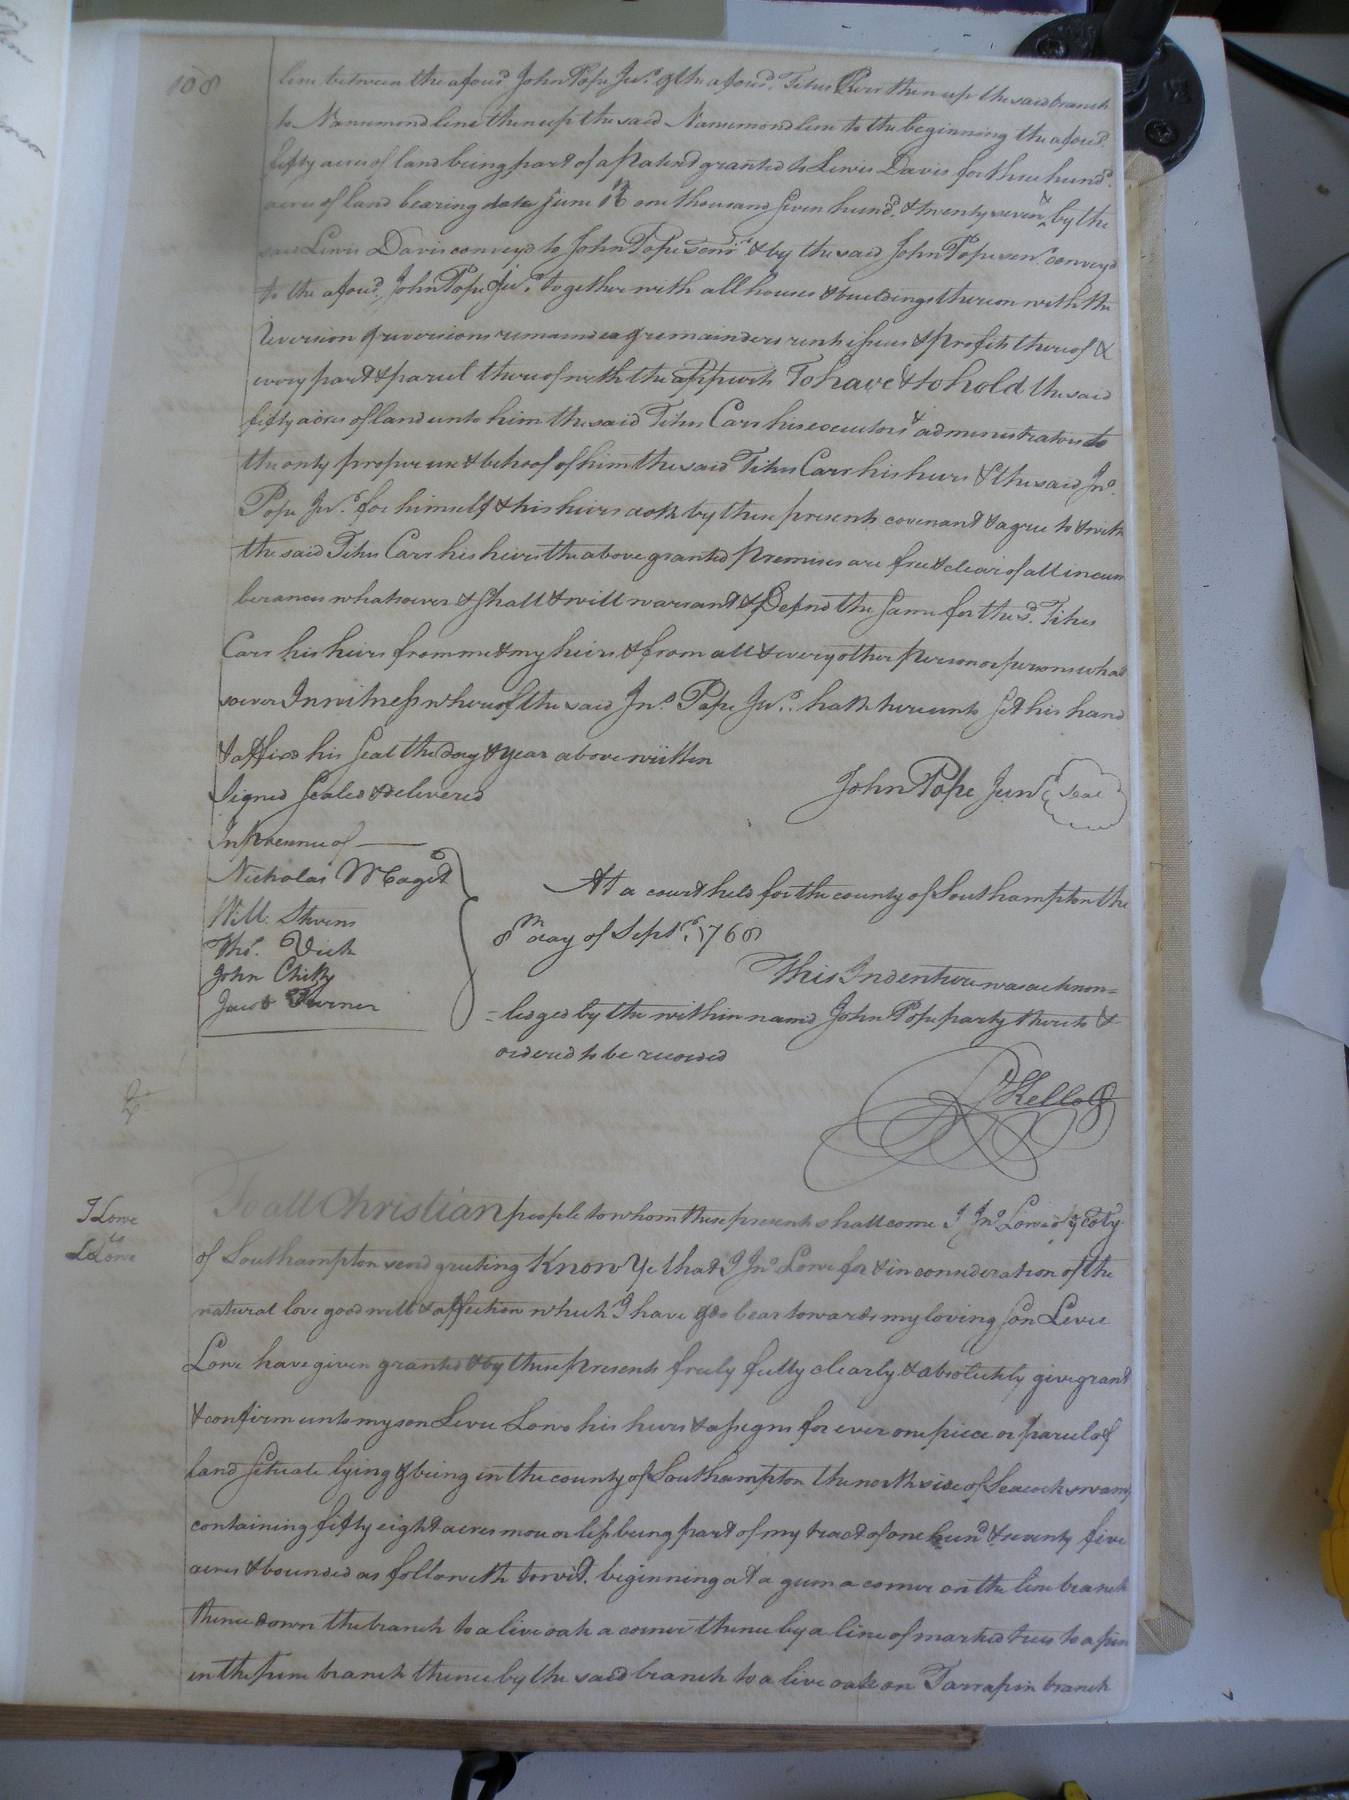 108
line between the afous.d John Pope Jur. & the afous.d Titus then up the said branch
to Nansemond line then up the said Nansemond line to the beginning the afous.d
fifty acres of land being part of a patent granted to Lewis Davis for three hund.d
acres of land bearing date June 16 one thousand Seven hund.d & twenty seven & by the
said Lewis Davis convey'd to John Pope Senr & by the said John Pope senr convey'd
to the afous.d John Pope Jur. together with all houses & buildings thereon with the
Reversion & reversions remainder & remainders rents issues & profits thereof &
every part & parcel thereof with the appurts To have & to hold the said
fifty acres of land unto him the said Titus Carr his executors & administrators to
the only proper use & behoof of him the said Titus Carr his heirs & the said Jno.
Pope Jur. for himself & his heirs doth by these presents covenant & agree to & with
the said Titus Carr his heirs the above granted premises are free & clear of all incum
berances whatsoever & Shall & will warrant & Defend the Same for the sd. Titus
Carr his heirs from me & my heirs & from all & every other person or persons what
soever In witness whereof the said Jno. Pope Jur. hath hereunto Set his hand
& affixd his Seal the day & year above written
Signed Sealed & delivered
John Pope Junr Seal
In presence of
Nicholas Maget
Will: Stevens
Thos. Vick
John Chitty
Jacob Turner
At a court held for the county of Southampton the
8th day of Septr. 1768
This Indenture was acknow=
=ledged by the within named John Pope party thereto &
ordered to be recorded
R Kello
J Lowe
to
L Lowe
To all Christian people to whom these presents shall come I Jno Lowe of ye Coty
of Southampton send greeting Know Ye that I Jno Lowe for & in consideration of the
natural love good will & affection which I have & do bear towards my loving Son Levie
Lowe have given granted & by these presents freely fully clearly & absolutely give grant
& confirm unto my son Levie Lowe his heirs & assigns for ever one piece or parcel of
land Situate lying & being in the county of Southampton the north side of Seacock swamp
containing fifty eight acres more or less being part of my tract of one hund.d & seventy five
acres & bounded as followeth towit. beginning at a gum a corner on the line branch
thence down the branch to a live oak a corner thence by a line of marked trees to a pine
in the branch thence by the said branch to a live oak on Tarrapin branch